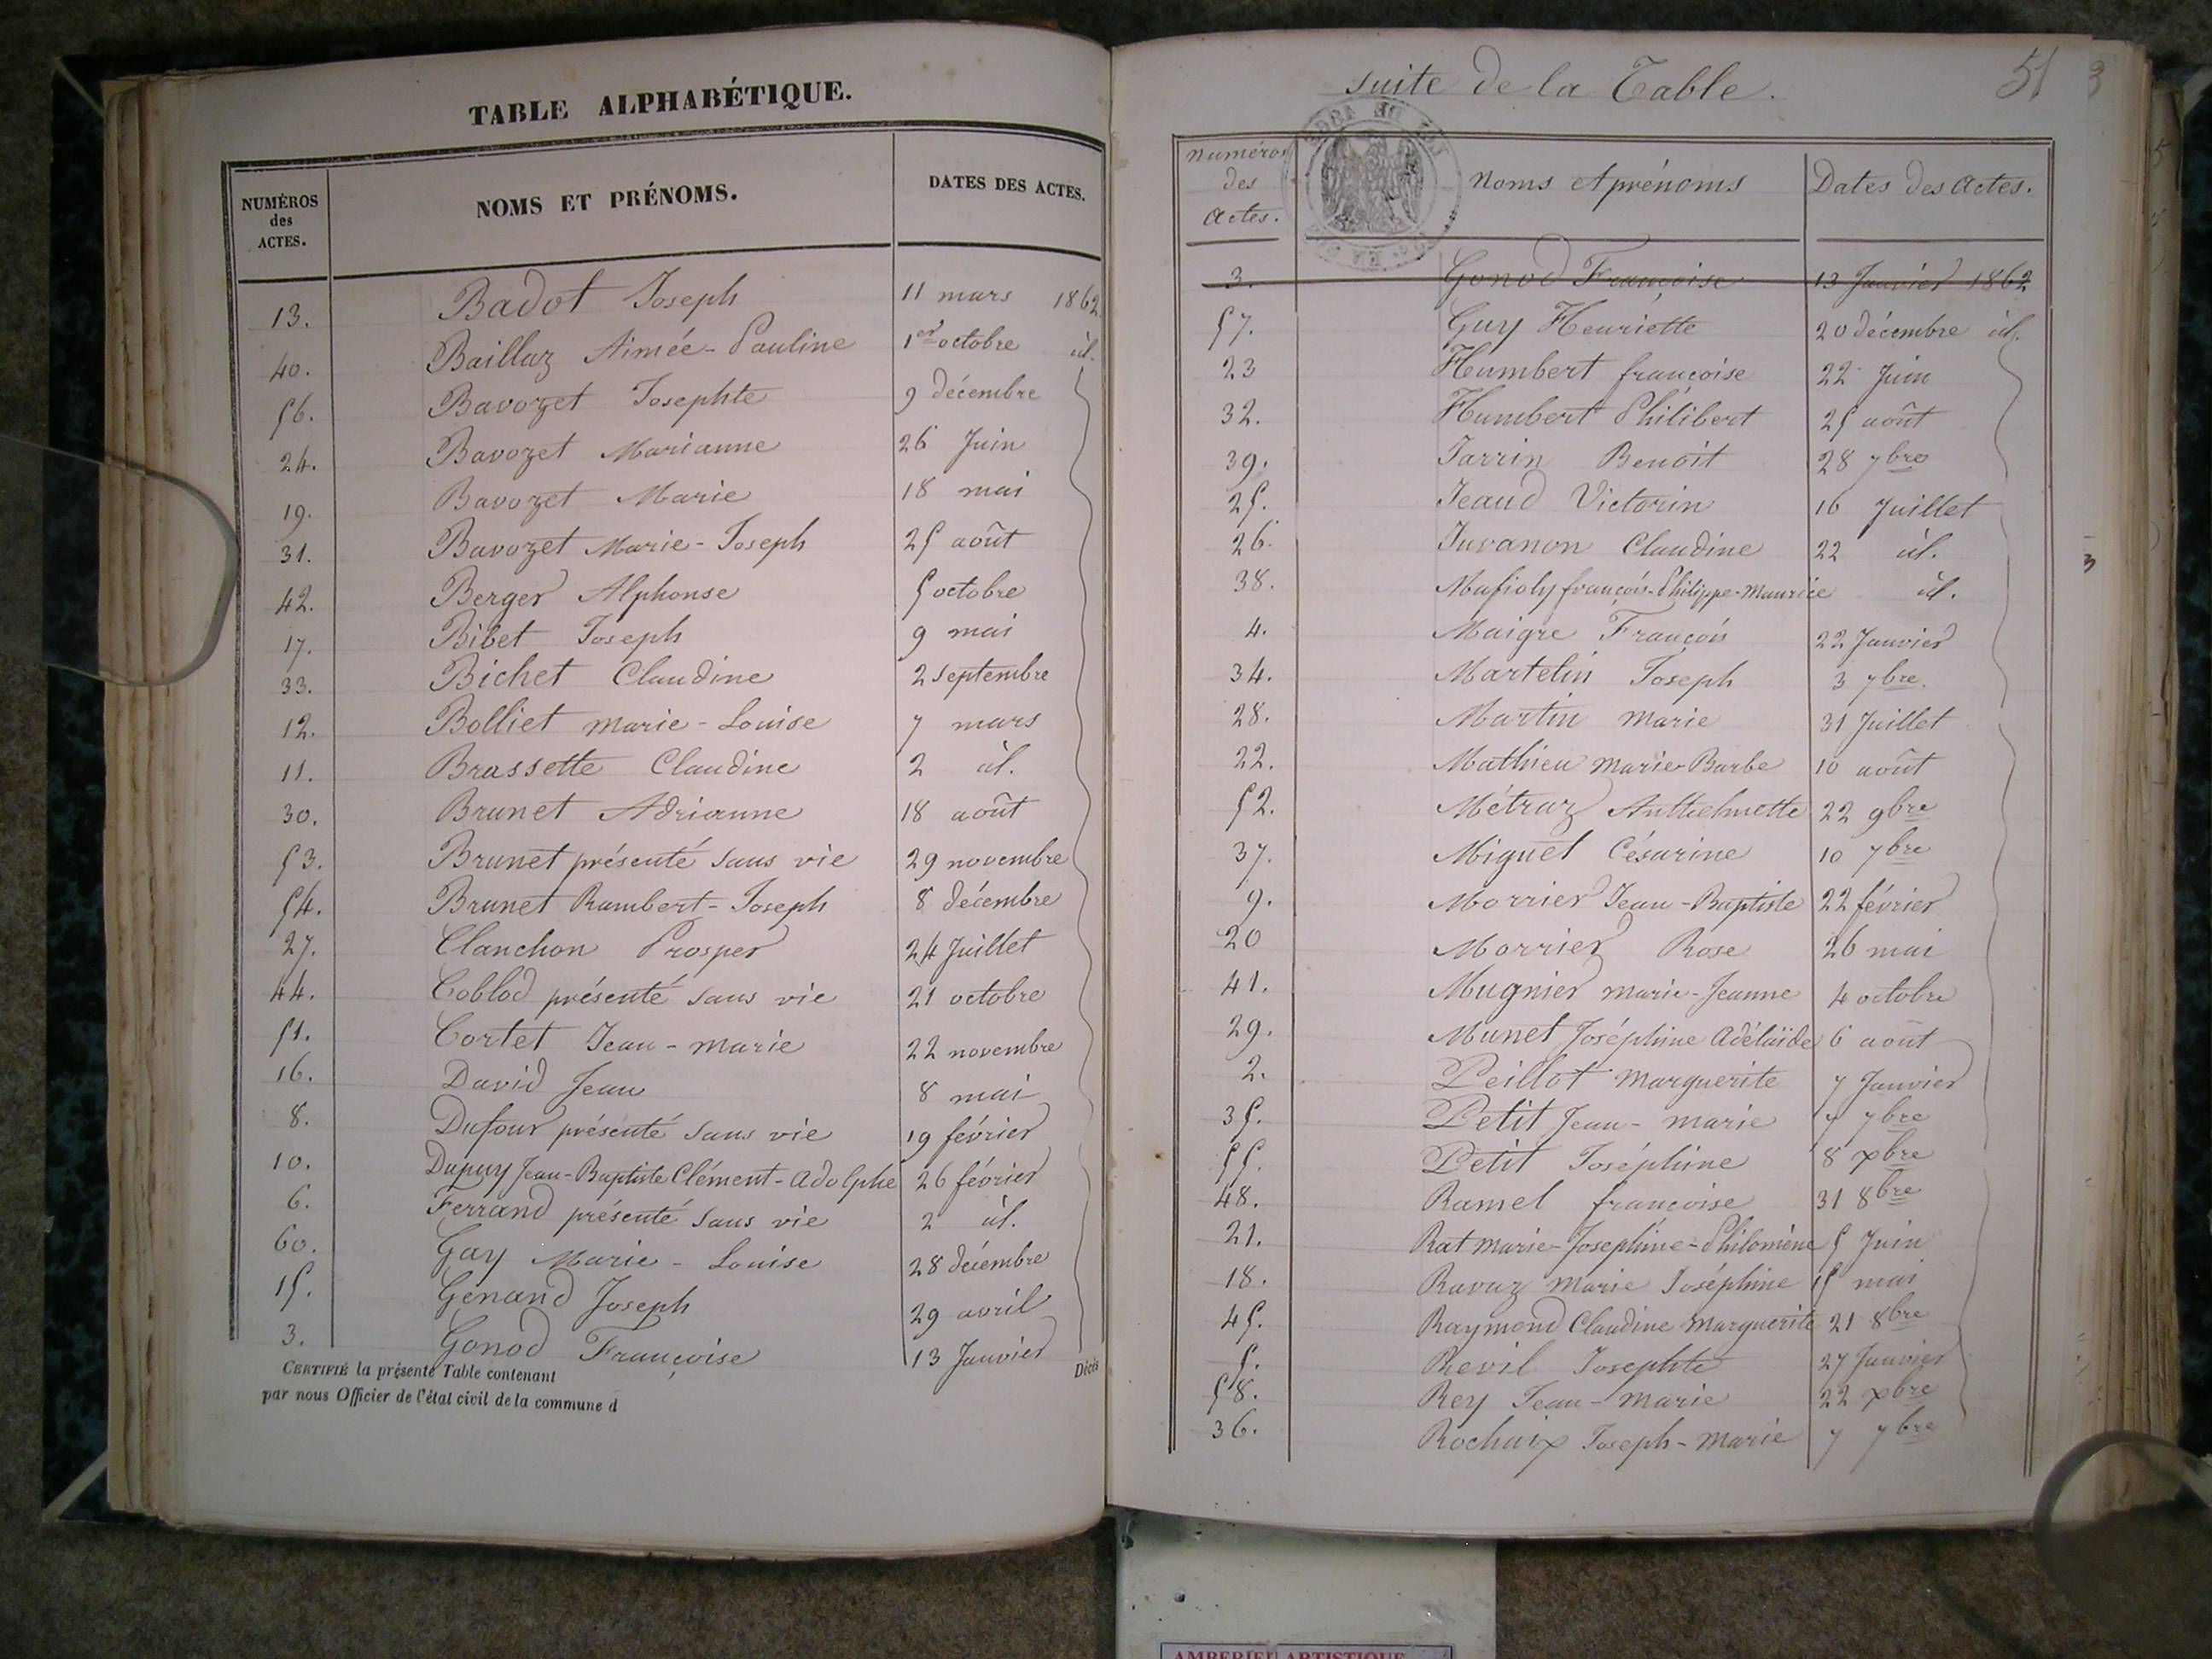 TABLE ALPHABÉTIQUE.
NUMÉROS des ACTES. NOMS ET PRÉNOMS. DATES DES ACTES.
13. Badot Joseph 11 mars 1862
40. Baillaz Aimée-Pauline 1er octobre id.
56. Bavozet Josephte 9 décembre
24. Bavozet Marianne 26 Juin
19. Bavozet Marie 18 mai
31. Bavozet Marie-Joseph 25 août
42. Berger Alphonse 5 octobre
17. Bibet Joseph 9 mai
33. Bichet Claudine 2 Septembre
12. Bolliet Marie-Louise 7 mars
11. Brassette Claudine 2 id.
30. Brunet Adrianne 18 août
53. Brunet présenté sans vie 29 novembre
54. Brunet Rambert-Joseph 8 décembre
27. Clanchon Prosper 24 Juillet
44. Coblod présenté sans vie 21 octobre
51. Cortet Jean-marie 22 novembre
16. David Jean 8 mai
8. Dufour présenté sans vie 19 février
10. Dupuy Jean-Baptiste Clément-Adolphe 26 février
6. Ferrand présenté sans vie 2 id.
60. Gay Marie-Louise 28 décembre
15. Genand Joseph 29 avril
3. Gonod Françoise 13 Janvier
CERTIFIÉ la présente Table contenant Décès
par nous Officier de l'état civil de la commune d
Suite de la Table. 51
numéros des actes. Noms et prénoms Dates des Actes.
3. Gonod Françoise 13 Janvier 1862
57. Guy Henriette 20 décembre id.
23 Humbert françoise 22 Juin
32. Humbert Philibert 25 août
39. Jarrin Benoit 28 7bre
25. Jeaud Victorin 16 Juillet
26. Juvanon Claudine 22 id.
38. françois-Philippe-Maurice id.
4. Maigre François 22 Janvier
34. Martelin Joseph 3 7bre.
28. Martin Marie 31 Juillet
22. Mathieu Marie Barbe 10 août
52. Métraz Anthelmette 22 9bre
37. Miguet Césarine 10 7bre
9. Morrier Jean-Baptiste 22 février
20 Morrier Rose 26 mai
41. Mugnier Marie-Jeanne 4 octobre
29. Munet Joséphine Adélaïde 6 août
2. Peillot Marguerite 7 Janvier
35. Petit Jean-marie 7 7bre
55. Petit Joséphine 8 xbre
48. Ramel françoise 31 8bre
21. Rat Marie-Joséphine-Philomène 5 Juin
18. Ravaz Marie Joséphine 15 mai
45. Raymond Claudine Marguerite 21 8bre
5. Revil Josephte 27 Janvier
58. Rey Jean-Marie 22 xbre
36. Rochaix Joseph-Marie 7 7bre
AMBERIEU ARTISTIQUE